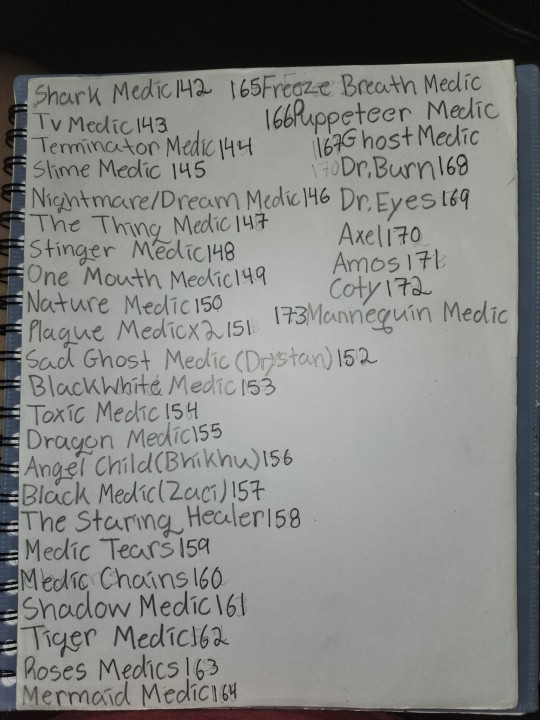 Shark Medic 142
Tv Medic 143
Terminator Medic 144
Slime Medic 145
Nightmare/Dream Medic 146
The Thing Medic 147
Stinger Medic 148
One Mouth Medic 149
Nature Medic 150
Plague Medicx2 151
Sad Ghost Medic (Drystan) 152
BlackWhite Medic 153
Toxic Medic 154
Dragon Medic 155
Angel Child (Bhikhu) 156
Black Medic (Zaci) 157
The Staring Healer 158
Medic Tears 159
Medic Chains 160
Shadow Medic 161
Tiger Medic 162
Roses Medics 163
Mermaid Medic 164
165 Freeze Breath Medic
166 Puppeteer Medic
167 Ghost Medic
170 Dr. Burn 168
Dr. Eyes 169
Axel 170
Amos 171
Coty 172
173 Mannequin Medic